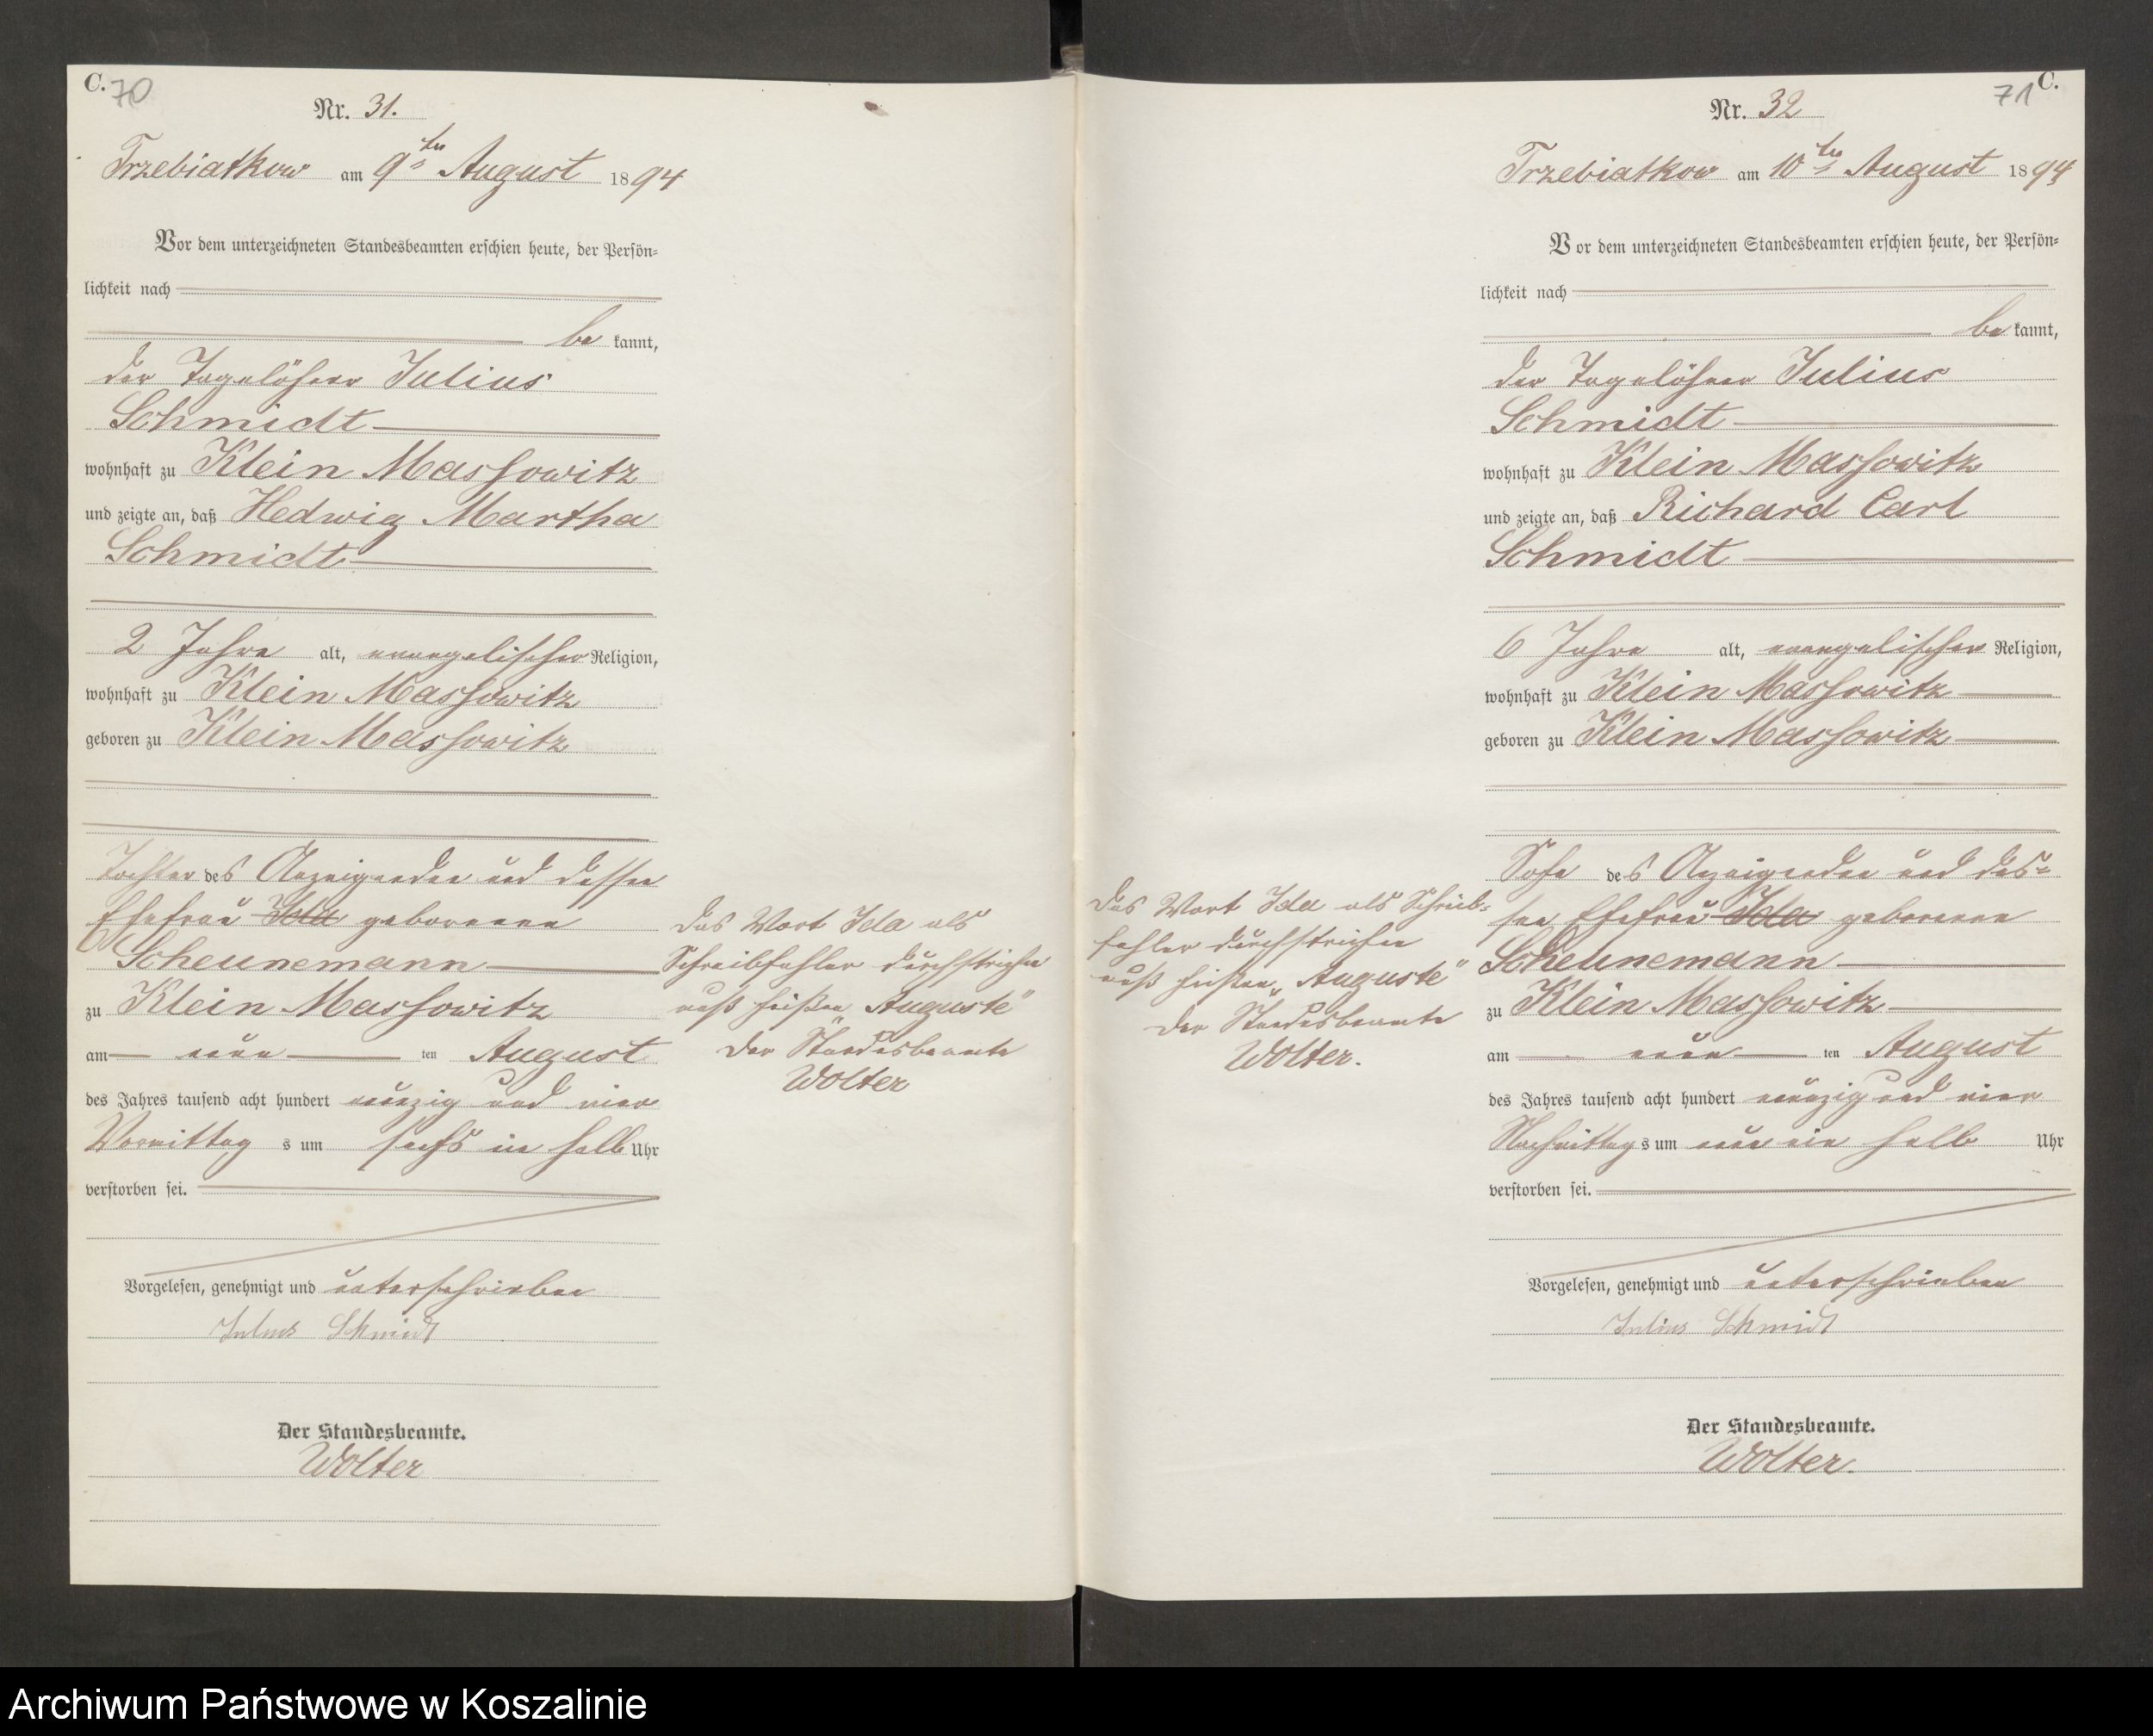 C. 70
Nr. 31.
Trzebiatkow am 9ten August 1894
Vor dem unterzeichneten Standesbeamten erschien heute, der Persön=
lichkeit nach
be kannt,
der Tagelöhner Julius
Schmidt
wohnhaft zu Klein Massowitz
und zeigte an, daß Hedwig Martha
Schmidt
2 Jahre alt, evangelischer Religion,
wohnhaft zu Klein Massowitz
geboren zu Klein Massowitz
Tochter des Anzeigenden und dessen
Ehefrau Ida geborenen
Scheunemann
zu Klein Massowitz
am neun ten August
des Jahres tausend acht hundert neunzig und vier
Vormittag s um sechs ein halb Uhr
verstorben sei.
Vorgelesen, genehmigt und unterschrieben
Julius Schmidt
Der Standesbeamte.
Wolter
Das Wort Ida als
Schreibfehler durchstrichen
muß heißen „Auguste"
Der Standesbeamte
Wolter
71 C.
Nr. 32
Trzebiatkow am 10ten August 1894
Vor dem unterzeichneten Standesbeamten erschien heute, der Persön=
lichkeit nach
be kannt,
der Tagelöhner Julius
Schmidt
wohnhaft zu Klein Massowitz
und zeigte an, daß Richard Carl
Schmidt
6 Jahre alt, evangelischer Religion,
wohnhaft zu Klein Massowitz
geboren zu Klein Massowitz
Sohn des Anzeigenden und des=
sen Ehefrau Ida geborenen
Scheunemann
zu Klein Massowitz
am neun ten August
des Jahres tausend acht hundert neunzig und vier
Nachmittag s um neun ein halb Uhr
verstorben sei.
Vorgelesen, genehmigt und unterschrieben
Julius Schmidt
Der Standesbeamte.
Wolter.
Das Wort Ida als Schreib=
fehler durchstrichen
muß heißen „Auguste"
Der Standesbeamte
Wolter.
Archiwum Państwowe w Koszalinie